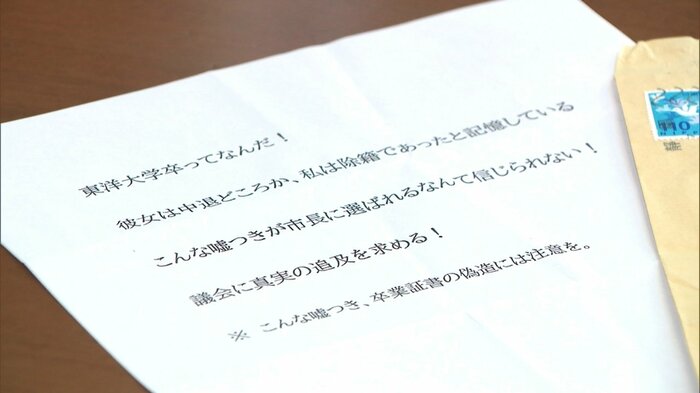 東洋大学卒ってなんだ！
彼女は中退どころか、私は除籍であったと記憶している
こんな嘘つきが市長に選ばれるなんて信じられない！
議会に真実の追及を求める！
※ こんな嘘つき、卒業証書の偽造には注意を。
110